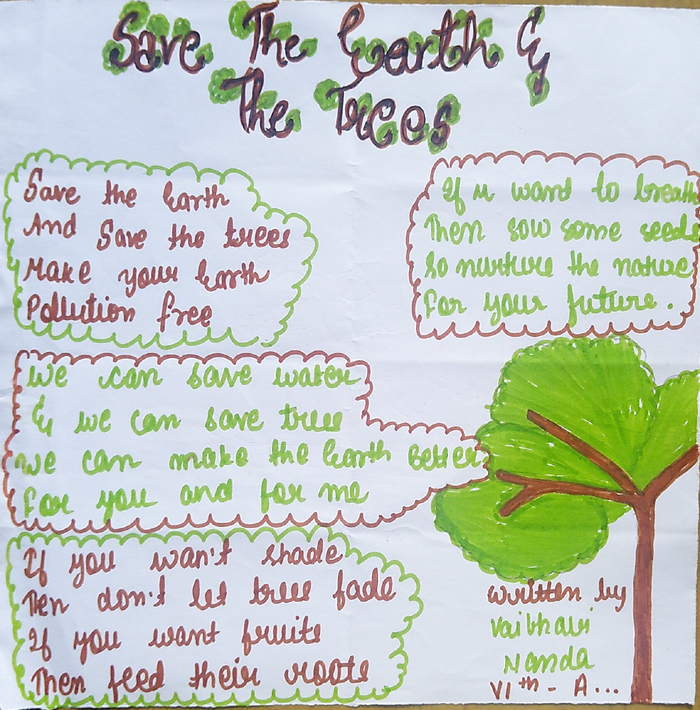 Save The Earth &
The Trees
Save the Earth
And Save the trees
Make your Earth
Pollution free
If u want to breath
Then sow some seeds
So nurture the nature
For your future.
We can save water
& we can save tree
We can make the Earth Better
For you and for me
If you wan't shade
Then don't let tree fade
If you want fruits
Then feed their roots
written by
Vaibhavi
Nanda
VIth - A...